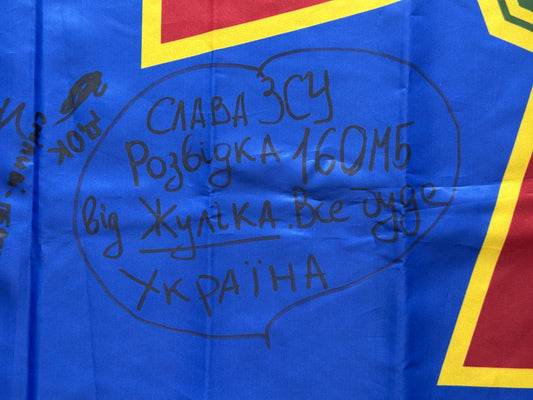 СЛАВА ЗСУ
Розвідка 160МБ
від Жуліка. Все буде
УКРАЇНА
РОК